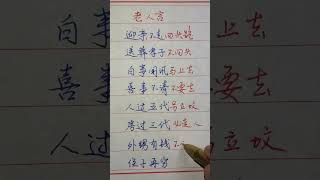 老人言
迎亲不走回头路
送葬孝子不回头
白事闻讯马上去
喜事不请不要去
人过三代马立坟
房过三代必丢人
外甥有钱不
侄子再穷
上去
要去
立坟